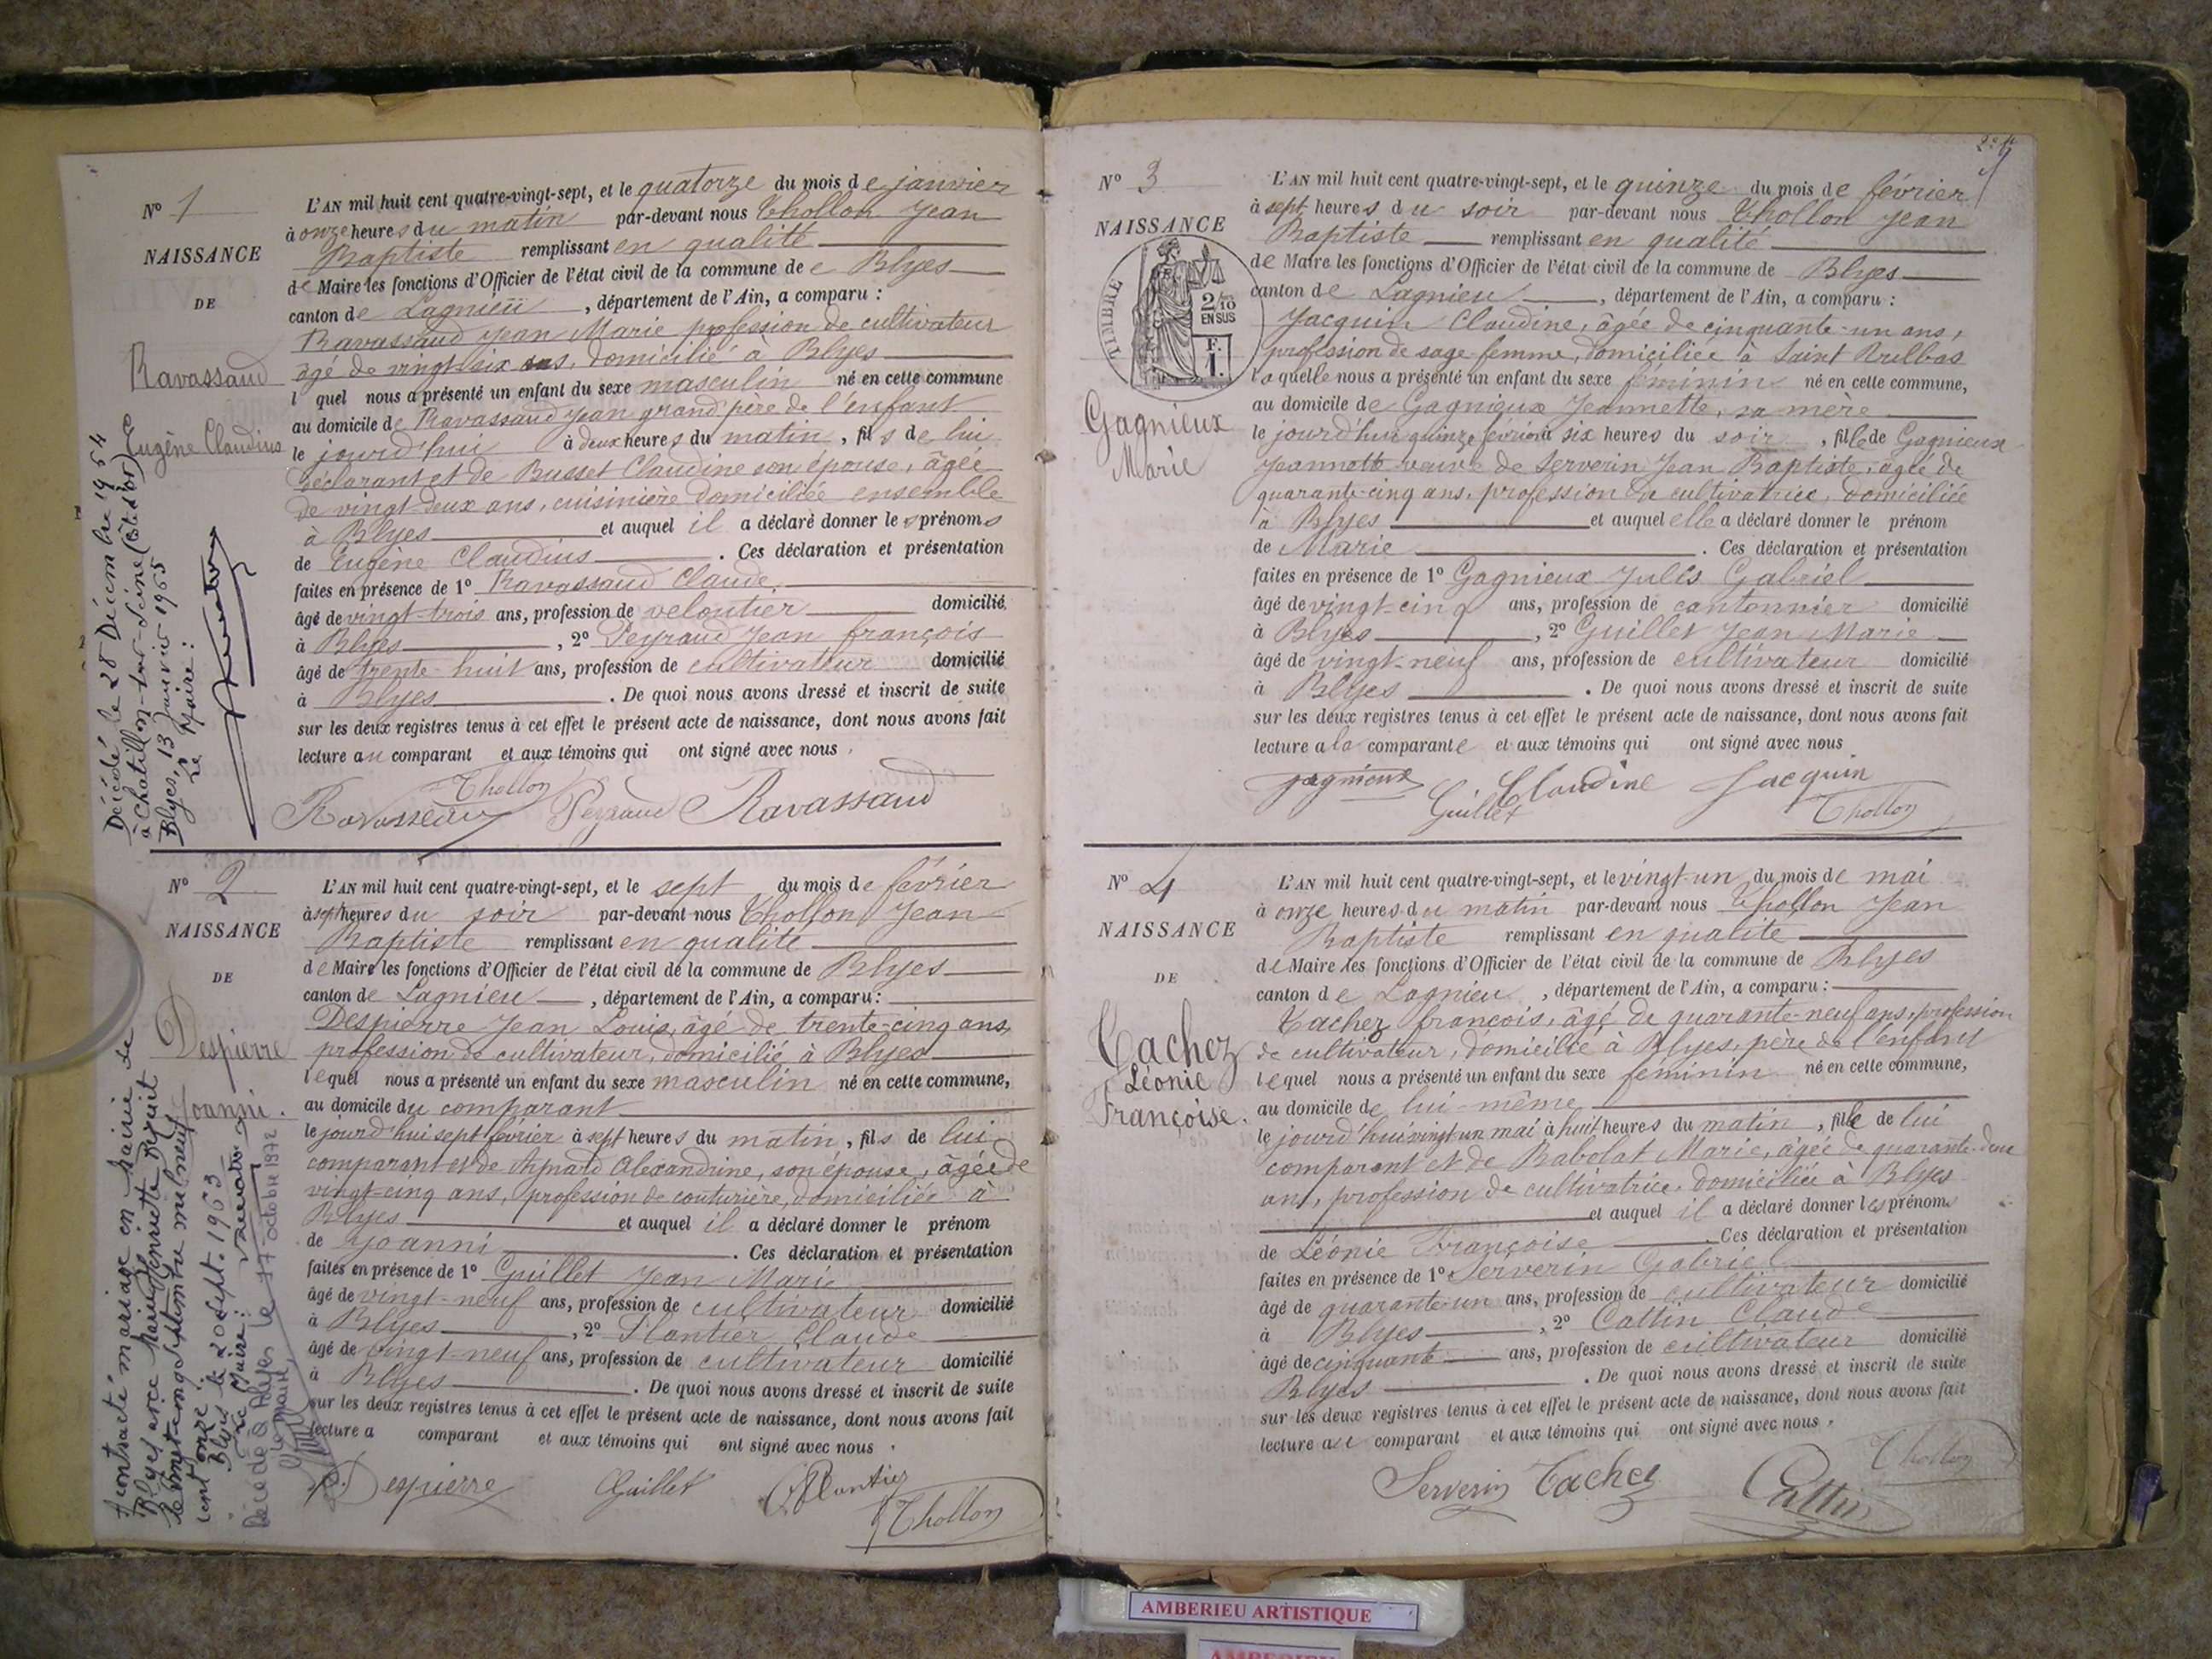 N° 1
NAISSANCE
DE
Ravassaud
Eugène Claudius
Décédé le 28 Décembre 1964
à Chatillon-sur-Seine (Côte d'Or)
Blyes, 13 janvier 1965
Le Maire :
L'AN mil huit cent quatre-vingt-sept, et le quatorze du mois de janvier
à onze heures du matin par-devant nous Thollon Jean
Baptiste remplissant en qualité
de Maire les fonctions d'Officier de l'état civil de la commune de Blyes
canton de Lagnieu, département de l'Ain, a comparu :
Ravassaud Jean Marie profession de cultivateur
âgé de vingt-six ans, domicilié à Blyes
l quel nous a présenté un enfant du sexe masculin né en cette commune
au domicile de Ravassaud Jean grand'père de l'enfant
le jourd'hui à deux heures du matin, fils de lui
déclarant et de Busset Claudine son épouse, âgée
de vingt-deux ans, cuisinière domiciliée ensemble
à Blyes et auquel il a déclaré donner les prénoms
de Eugène Claudius. Ces déclaration et présentation
faites en présence de 1° Ravassaud Claude
âgé de vingt-trois ans, profession de veloutier domicilié
à Blyes, 2° Peyraud Jean François
âgé de trente-huit ans, profession de cultivateur domicilié
à Blyes. De quoi nous avons dressé et inscrit de suite
sur les deux registres tenus à cet effet le présent acte de naissance, dont nous avons fait
lecture au comparant et aux témoins qui ont signé avec nous.
Thollon
Ravassaud Peyraud Ravassaud
N° 2
NAISSANCE
DE
Despierre
Joanni.
A contracté mariage en Mairie de
Blyes avec
le vingt-cinq Septembre mil neuf
cent onze.
Blyes le 20 Sept. 1963
Le Maire :
Décédé à Blyes le 17 octobre 1972
Le Maire,
L'AN mil huit cent quatre-vingt-sept, et le sept du mois de février
à sept heures du soir par-devant nous Thollon Jean
Baptiste remplissant en qualité
de Maire les fonctions d'Officier de l'état civil de la commune de Blyes
canton de Lagnieu, département de l'Ain, a comparu :
Despierre Jean Louis, âgé de trente-cinq ans,
profession de cultivateur, domicilié à Blyes
lequel nous a présenté un enfant du sexe masculin né en cette commune,
au domicile du comparant
le jourd'hui sept février à sept heures du matin, fils de lui
comparant et de Alexandrine, son épouse, âgée de
vingt-cinq ans, profession de couturière, domiciliée à
Blyes et auquel il a déclaré donner le prénom
de Joanni. Ces déclaration et présentation
faites en présence de 1° Guillet Jean Marie
âgé de vingt-neuf ans, profession de cultivateur domicilié
à Blyes, 2° Plantier Claude
âgé de vingt-neuf ans, profession de cultivateur domicilié
à Blyes. De quoi nous avons dressé et inscrit de suite
sur les deux registres tenus à cet effet le présent acte de naissance, dont nous avons fait
lecture a comparant et aux témoins qui ont signé avec nous.
Despierre Guillet Plantier
Thollon
N° 3
NAISSANCE
TIMBRE
2/10
EN SUS
F.
1.
Gagnieux
Marie
L'AN mil huit cent quatre-vingt-sept, et le quinze du mois de février
à sept heures du soir par-devant nous Thollon Jean
Baptiste remplissant en qualité
de Maire les fonctions d'Officier de l'état civil de la commune de Blyes
canton de Lagnieu, département de l'Ain, a comparu :
Jacquin Claudine, âgée de cinquante-un ans,
profession de sage-femme, domiciliée à Saint Vulbas
laquelle nous a présenté un enfant du sexe féminin né en cette commune,
au domicile de Gagnieux Jeannette, sa mère
le jourd'hui quinze février à six heures du soir, fille de Gagnieux
Jeannette veuve de Serverin Jean Baptiste, âgée de
quarante-cinq ans, profession de cultivatrice, domiciliée
à Blyes et auquel elle a déclaré donner le prénom
de Marie. Ces déclaration et présentation
faites en présence de 1° Gagnieux Jules Gabriel
âgé de vingt-cinq ans, profession de cantonnier domicilié
à Blyes, 2° Guillet Jean Marie
âgé de vingt-neuf ans, profession de cultivateur domicilié
à Blyes. De quoi nous avons dressé et inscrit de suite
sur les deux registres tenus à cet effet le présent acte de naissance, dont nous avons fait
lecture a la comparante et aux témoins qui ont signé avec nous.
Gagnieux Claudine Jacquin
Guillet Thollon
N° 4
NAISSANCE
DE
Tachez
Léonie
Françoise.
L'AN mil huit cent quatre-vingt-sept, et le vingt-un du mois de mai
à onze heures du matin par-devant nous Thollon Jean
Baptiste remplissant en qualité
de Maire les fonctions d'Officier de l'état civil de la commune de Blyes
canton de Lagnieu, département de l'Ain, a comparu :
Tachez françois, âgé de quarante-neuf ans, profession
de cultivateur, domicilié à Blyes, père de l'enfant
lequel nous a présenté un enfant du sexe féminin né en cette commune,
au domicile de lui-même
le jourd'hui vingt-un mai à huit heures du matin, fille de lui
comparant et de Babolat Marie, âgée de quarante-deux
ans, profession de cultivatrice, domiciliée à Blyes
et auquel il a déclaré donner les prénoms
de Léonie Françoise. Ces déclaration et présentation
faites en présence de 1° Serverin Gabriel
âgé de quarante-un ans, profession de cultivateur domicilié
à Blyes, 2° Cattin Claude
âgé de cinquante ans, profession de cultivateur domicilié
Blyes. De quoi nous avons dressé et inscrit de suite
sur les deux registres tenus à cet effet le présent acte de naissance, dont nous avons fait
lecture au comparant et aux témoins qui ont signé avec nous.
Thollon
Serverin Tachez Cattin
AMBERIEU ARTISTIQUE
AMBERIEU